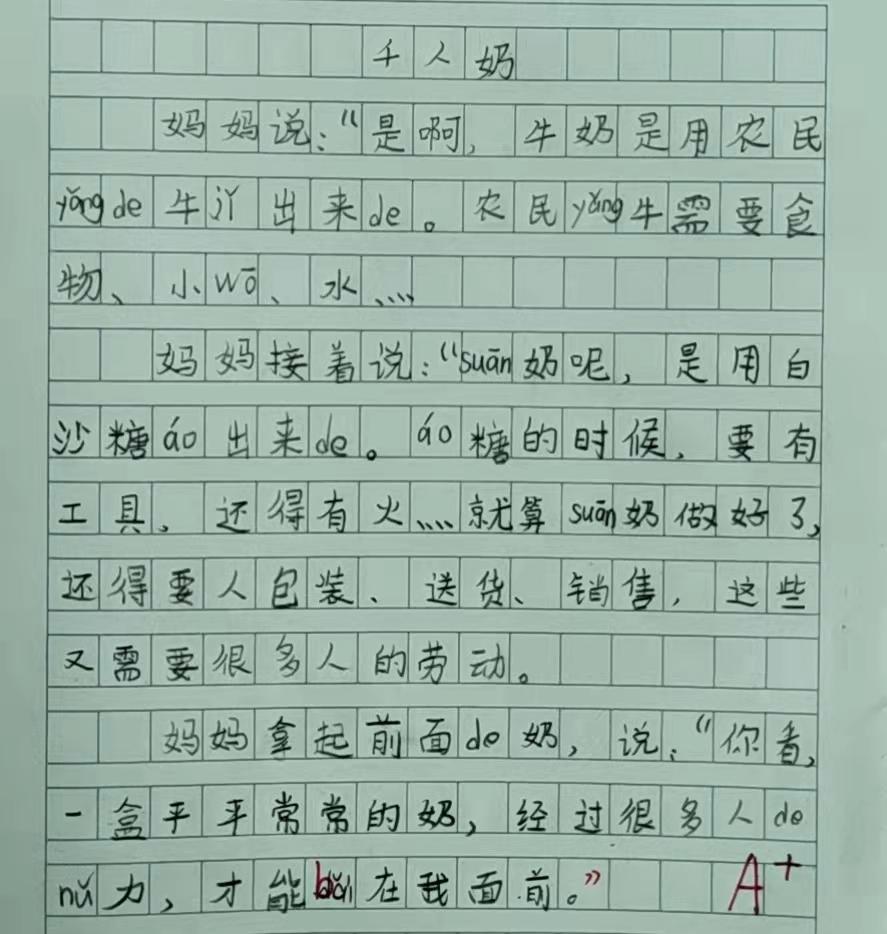 千人奶
妈妈说：“是啊，牛奶是用农民
yǎng de 牛 jǐ 出来 de。农民 yǎng 牛需要食
物、小 wō、水、……
妈妈接着说：“suān 奶呢，是用白
沙糖 áo 出来 de。áo 糖的时候，要有
工具，还得有火……就算 suān 奶做好了，
还得要人包装、送货、销售，这些
又需要很多人的劳动。
妈妈拿起前面 de 奶，说：“你看，
一盒平平常常的奶，经过很多人 de
nǔ 力，才能 bǎi 在我面前。”
A+